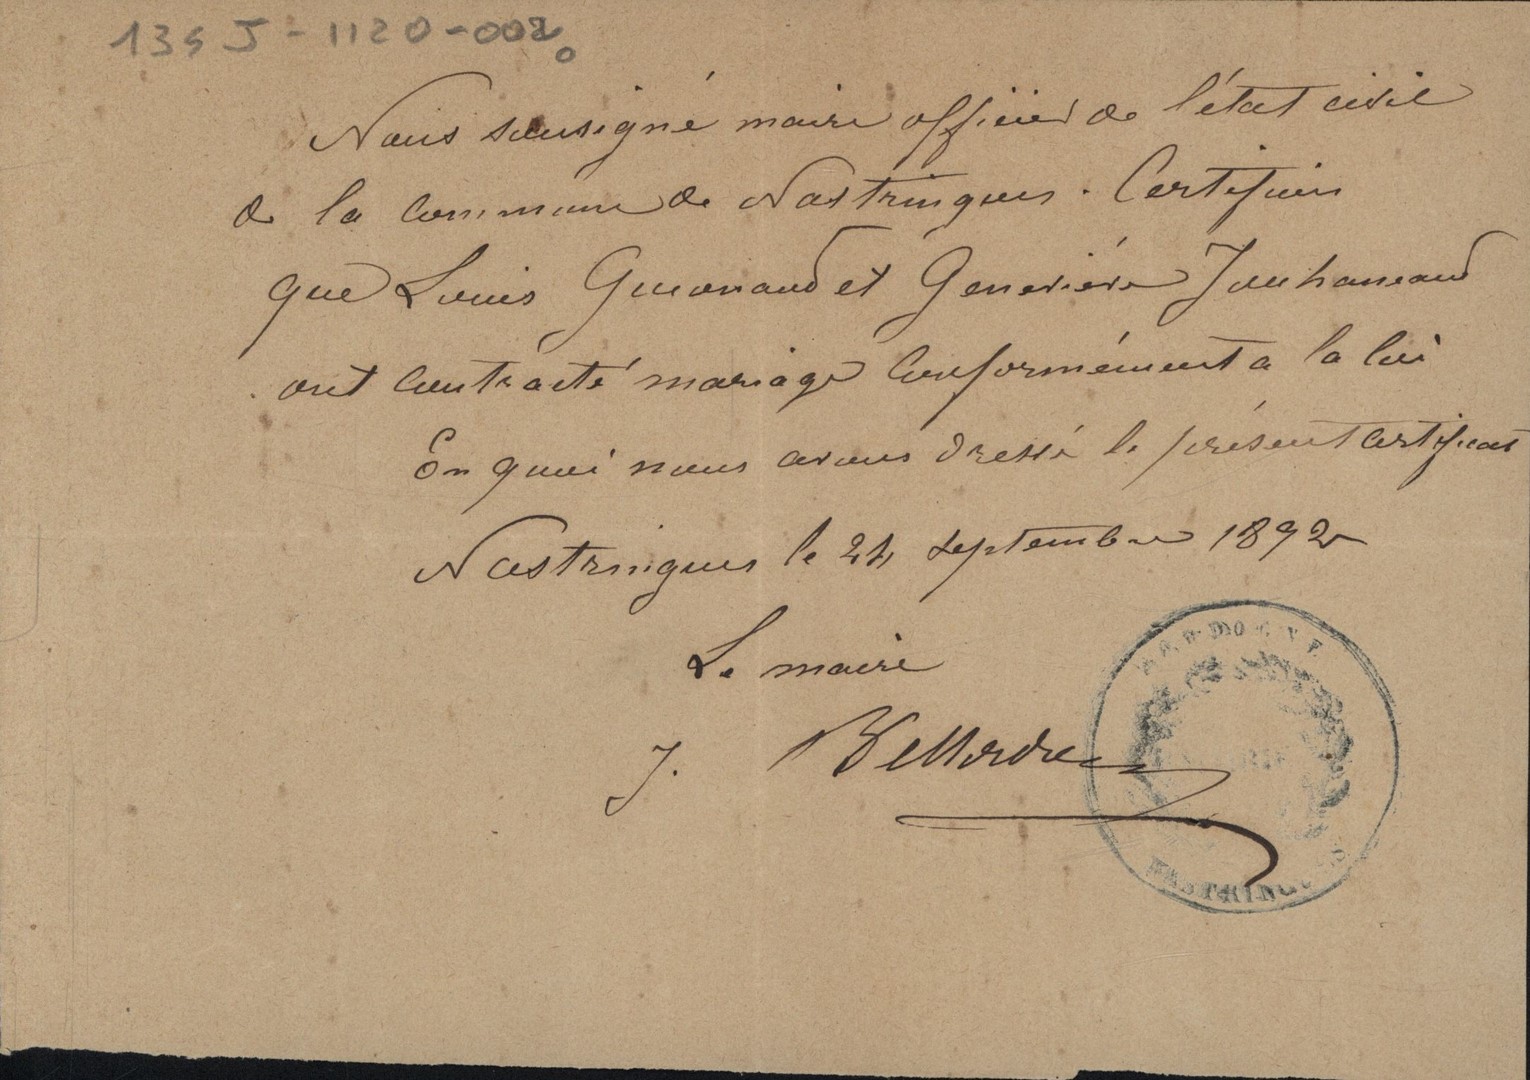 135 J - 1120 - 002
Nous soussigné maire officier de l'état civil
de la commune de Nastringues. Certifions
que Louis Guionaud et Genevière Jouhaneaud
ont contracté mariage conformément a la loi
En quoi nous avons dressé le présent certificat
Nastringues le 24 septembre 1892
Le maire
J. Bellarde
DORDOGNE
MAIRIE
NASTRINGUES